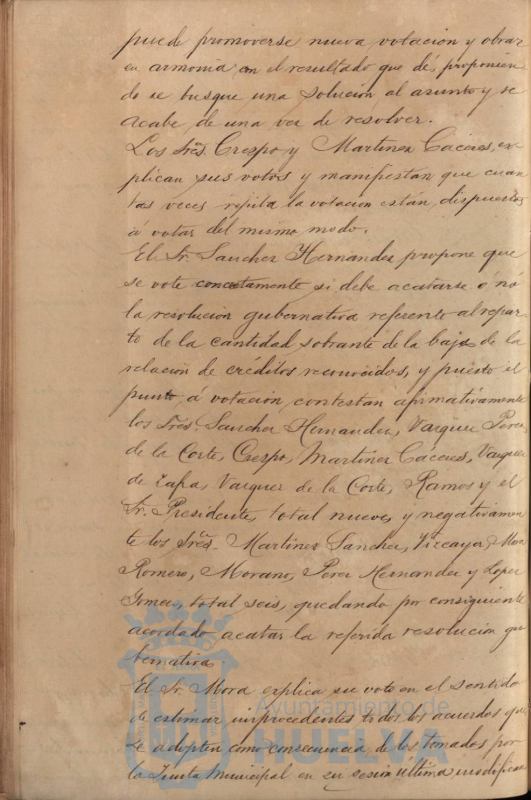 puede promoverse nueva votacion y obrar
en armonia con el resultado que dé, proponien
do se busque una solucion al asunto y se
acabe de una vez de resolver.
Los Srēs. Crespo y Martinez Cáceres, ex
plican sus votos y manifiestan que cuan
tas veces repita la votacion están dispuestos
á votar del mismo modo.
El Sr. Sanchez Hernandez propone que
se vote concretamente si debe acatarse ó no
la resolucion gubernativa referente al repar
to de la cantidad sobrante de la baja de la
relacion de créditos reconocidos, y puesto el
punto á votacion contestan afirmativamente
los Srēs Sanchez Hernandez, Vazquez Perez
de la Corte, Crespo, Martinez Cáceres, Vazquez
de Zafra, Vazquez de la Corte, Ramos y el
Sr. Presidente, total nueve, y negativamen
te los Srēs. Martinez Sanchez, Vizcaya, Mora
Romero, Morano, Perez Hernandez y Lopez
Gomez, total seis, quedando por consiguiente
acordado acatar la referida resolucion gu
bernativa.
El Sr. Mora explica su voto en el sentido
de estimar improcedentes todos los acuerdos que
se adopten como consecuencia de los tomados por
la Junta Municipal en su sesion última, modifican
Ayuntamiento de
HUELVA